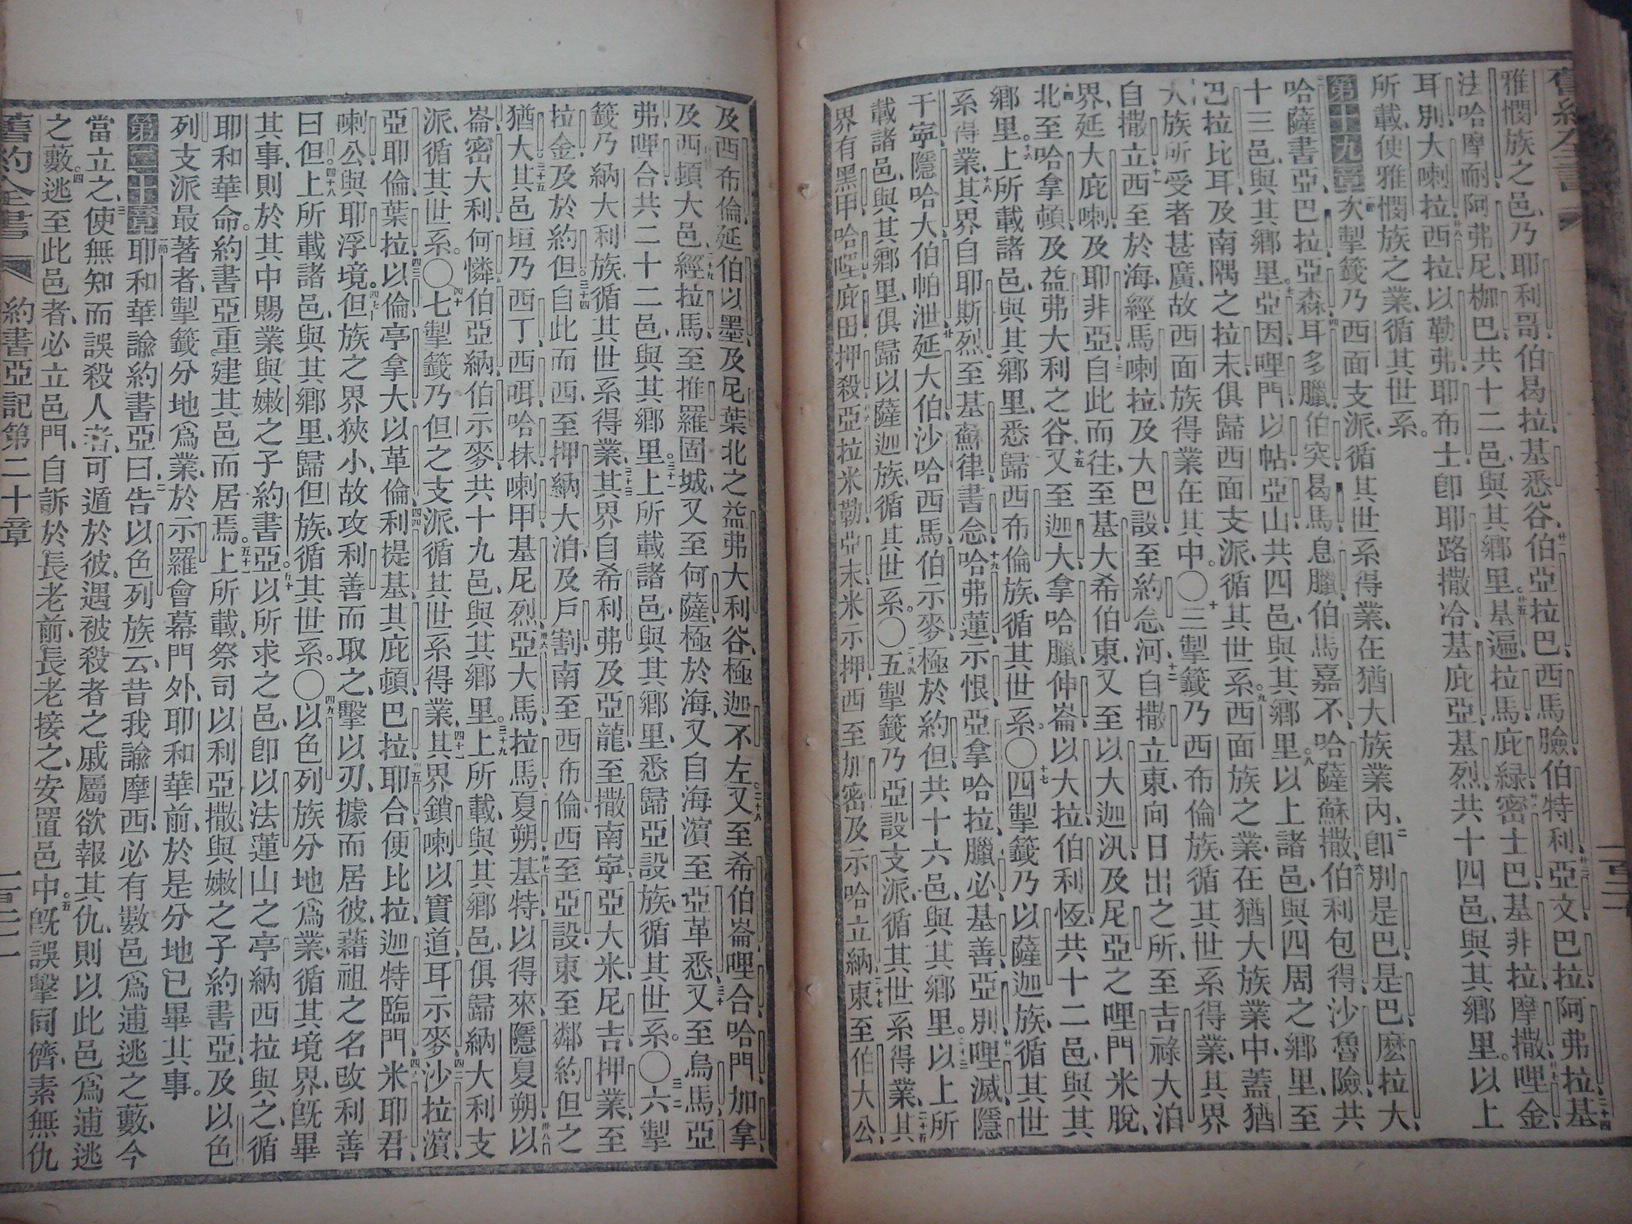 雅憫族之邑乃耶利哥伯曷拉基悉谷伯亞拉巴西馬臉伯特利亞文巴拉阿弗拉基
法哈摩耐阿弗尼枷巴共十二邑與其鄉里基遍拉馬庇綠密士巴基非拉摩撒哩金
耳別大喇拉西拉以勒弗耶布士卽耶路撒冷基庇亞基烈共十四邑與其鄉里以上
所載便雅憫族之業循其世系
第十九章次掣籤乃西面支派循其世系得業在猶大族業內卽別是巴是巴麽拉大
哈薩書亞巴拉亞森耳多臘伯突曷馬息臘伯馬嘉不哈薩蘇撒伯利包得沙魯險共
十三邑與其鄉里亞因哩門以帖亞山共四邑與其鄉里以上諸邑與四周之鄉里至
巴拉比耳及南隅之拉末俱歸西面支派循其世系西面族之業在猶大族業中蓋猶
大族所受者甚廣故西面族得業在其中〇三掣籤乃西布倫族循其世系得業其界
自撒立西至於海經馬喇拉及大巴設至約念河自撒立東向日出之所至吉祿大泊
界延大庇喇及耶非亞自此而往至基大希伯東又至以大迦汎及尼亞之哩門米脫
北至哈拿頓及益弗大利之谷又至迦大拿哈臘伸崙以大拉伯利恆共十二邑與其
鄉里上所載諸邑與其鄉里悉歸西布倫族循其世系〇四掣籤乃以薩迦族循其世
系得業其界自耶斯烈至基蘇律書念哈弗蓮示恨亞拿哈拉臘必基善亞別哩滅隱
干寧隱哈大伯帕泄延大伯沙哈西馬伯示麥極於約但共十六邑與其鄉里以上所
載諸邑與其鄉里俱歸以薩迦族循其世系〇五掣籤乃亞設支派循其世系得業其
界有黑甲哈哩庇田押殺亞拉米勒亞末米示押西至加密及示哈立納東至伯大公
及西布倫延伯以墨及尼葉北之益弗大利谷極迦不左又至希伯崙哩合哈門加拿
及西頓大邑經拉馬至推羅固城又至何薩極於海又自海濱至亞革悉又至烏馬亞
弗哩合共二十二邑與其鄉里上所載諸邑與其鄉里悉歸亞設族循其世系〇六掣
籤乃納大利族循其世系得業其界自希利弗及亞龍至撒南寧亞大米尼吉押業至
拉金及於約但自此而西至押納大泊及戶割南至西布倫西至亞設東至鄰約但之
猶大其邑垣乃西丁西咡哈抹喇甲基尼烈亞大馬拉馬夏朔基特以得來隱夏朔以
崙密大利何憐伯亞納伯示麥共十九邑與其鄉里上所載與其鄉邑俱歸納大利支
派循其世系〇七掣籤乃但之支派循其世系得業其界鎖喇以實道耳示麥沙拉濱
亞耶倫葉拉以倫亭拿大以革倫利提基其庇頓巴拉耶合便比拉迦特臨門米耶君
喇公與耶浮境但族之界狹小故攻利善而取之擊以刃據而居彼藉祖之名改利善
曰但上所載諸邑與其鄉里歸但族循其世系〇以色列族分地爲業循其境界旣畢
其事則於其中賜業與嫩之子約書亞以所求之邑卽以法蓮山之亭納西拉與之循
耶和華命約書亞重建其邑而居焉上所載祭司以利亞撒與嫩之子約書亞及以色
列支派最著者掣籤分地爲業於示羅會幕門外耶和華前於是分地已畢其事
第二十章耶和華諭約書亞曰告以色列族云昔我諭摩西必有數邑爲逋逃之藪今
當立之使無知而誤殺人者可遁於彼遇被殺者之戚屬欲報其仇則以此邑爲逋逃
之藪逃至此邑者必立邑門自訴於長老前長老接之安置邑中旣誤擊同儕素無仇
舊約全書 約書亞記第二十章